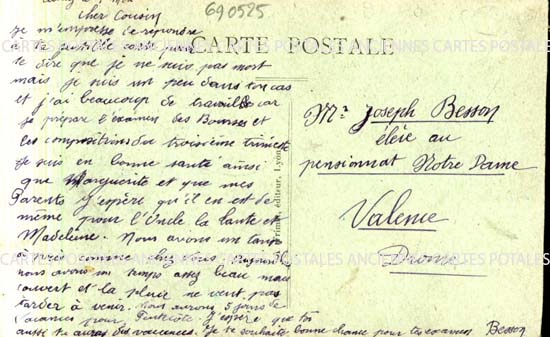 690525
cher Cousin
Je m'empresse de répondre
à ta gentille carte pour
te dire que je ne suis pas mort
mais je suis un peu dans ton cas
et j'ai beaucoup de travail car
je prépare l'examen des Bourses et
les compositions du troisième trimestre
Je suis en bonne santé ainsi
que Marguerite et que mes
Parents J'espère qu'il en est de
même pour l'Oncle la tante et
Madeleine. Nous avons un temps
comme chez vous
nous avons un temps assez beau mais
couvert et la pluie ne veut pas
tarder à venir. Nous aurons 3 jours de
vacances pour Pentecôte. J'espère que toi
aussi tu auras des vacances. Je te souhaite bonne chance pour tes examens Besson
CARTE POSTALE
ANCIENNES CARTES POSTALES
éditeur, Lyon
Mr. Joseph Besson
élève au
pensionnat Notre Dame
Valence
Drome
CARTES POSTALES ANCIENNES